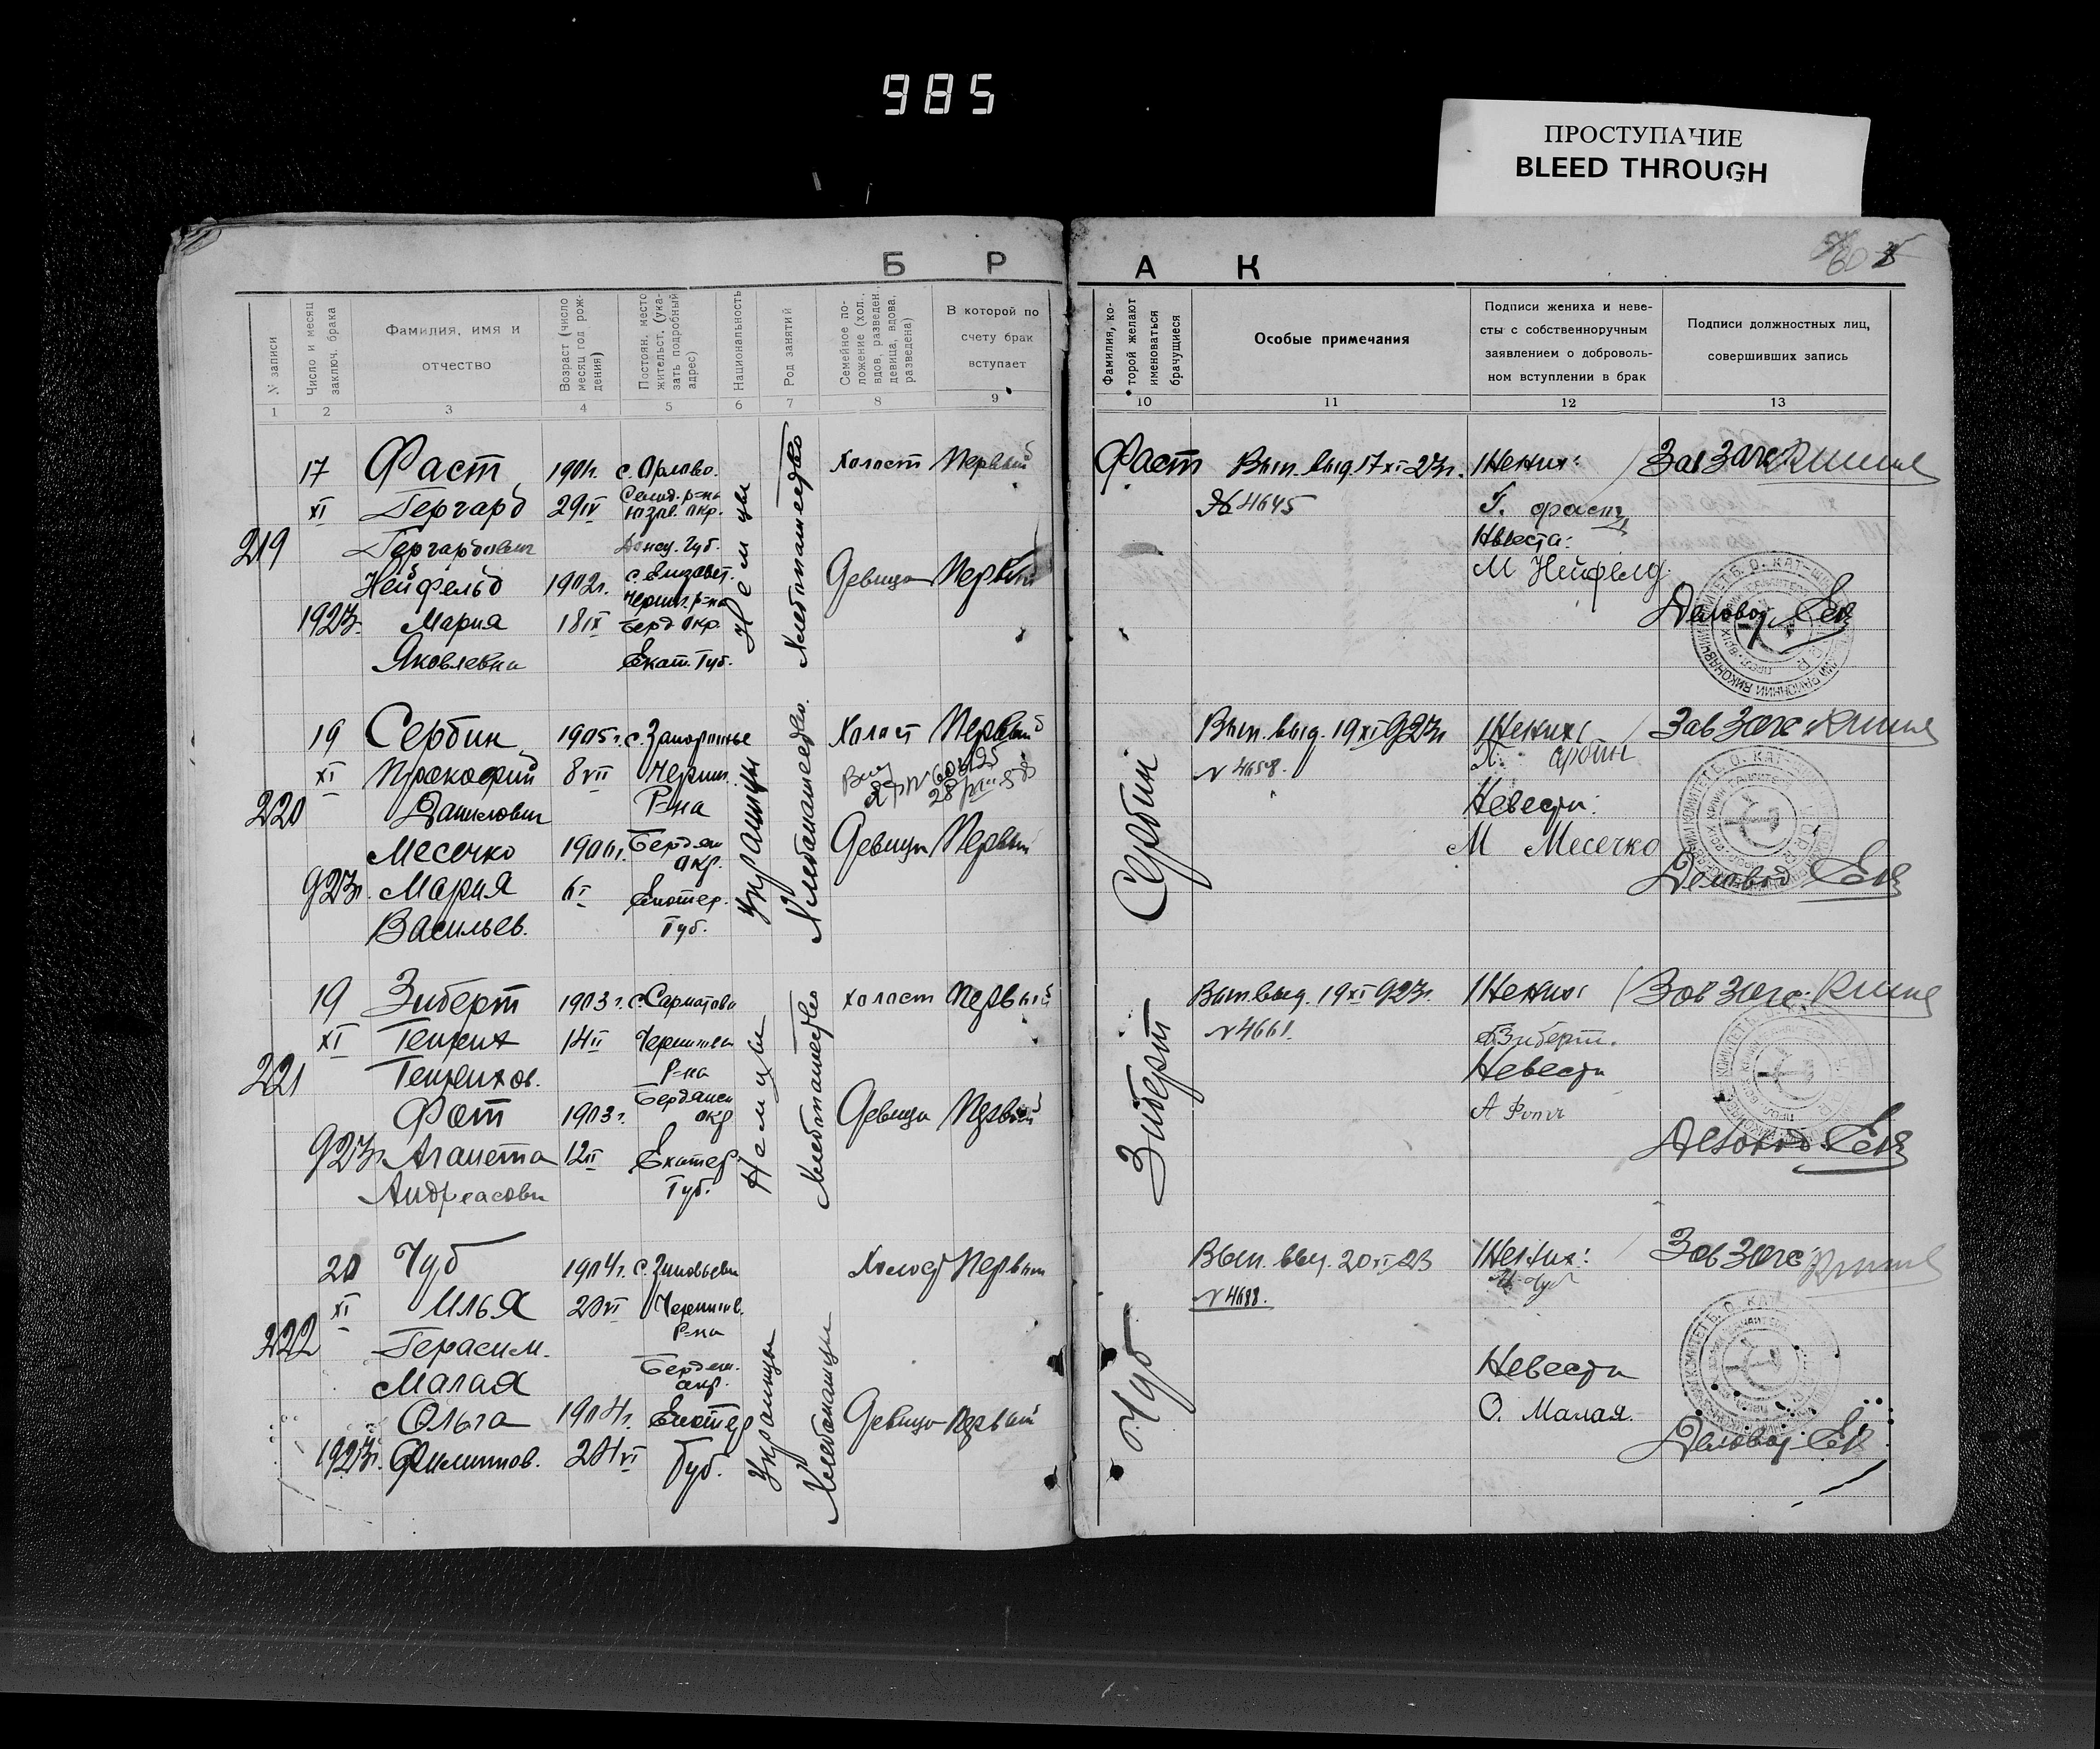 985
ПРОСТУПАНИЕ
BLEED THROUGH
Б Р А К
60
№ записи
Число и месяц заключ. брака
Фамилия, имя и
отчество
Возраст (число месяц год рождения)
Постоян. место жительст. (указать подробный адрес)
Национальность
Род занятий
Семейное положение (хол., вдов, разведен., девица, вдова, разведена)
В которой по
счету брак
вступает
Фамилия, которой желают именоваться брачущиеся
Особые примечания
Подписи жениха и неве-
сты с собственноручным
заявлением о доброволь-
ном вступлении в брак
Подписи должностных лиц,
совершивших запись
1 2 3 4 5 6 7 8 9 10 11 12 13
219
17
XI
1923г.
Фаст
Гергард
Гергардович
Нейфельд
Мария
Яковлевна
1901г.
29 IV
1902г.
18 IX
с. Орлово.
Селид. р=на
Юзов. окр.
Донец. Губ.
с. Елизавет.
Черниг. р=на
Берд. окр.
Екат. Губ.
Немцы
Хлебопашество
Холост Первый
Девица Первый
Фаст
Вып. выд. 17 XI 23г.
№ 4645
Жених:
Г. Фаст
Невеста:
М Нейфелд
Зав Загс
Деловод
220
19
XI
923г.
Сербин
Прокофий
Данилович
Месечко
Мария
Васильев.
1905г.
8 VII
6 I
с. Запорожье
Черниг.
Р=на
Бердян
окр.
Екатер.
Губ.
Украинцы
Хлебопашество.
Холост Первый
Девица Первый
Сербин
Вып. выд. 19 XI 923г
№ 4658.
Жених
Невеста:
М Месечко
Зав Загс
Деловод
221
19
XI
923г
Зиберт
Генрих
Генрихов.
Фот
Аганета
Андреасовн
1903г.
14 II
1903г.
12 II
Черниговск
Р=на
Бердянск
окр
Екатер
Губ.
Немцы
Хлебопашество
холост Первый
Девица Первый
Зиберт
Вып. выд. 19 XI 923г.
№ 4661.
Жених
Зиберт.
Невеста
Зав Загс.
Деловод
222
20
XI
1923г.
Чуб
Илья
Герасим.
Малая
Ольга
Филиппов.
1904г.
20 VI
1904г.
24 VI
с. Зиновьевка
Чернигов.
Р=на
Бердян.
окр.
Екатер
Губ.
Украинцы
Хлебопашцы
Холост Первый
Девица Первый
Чуб
Вып. выд. 20 XI 23
№ 4688.
Жених:
Невеста
О. Малая.
Зав Загс
Деловод